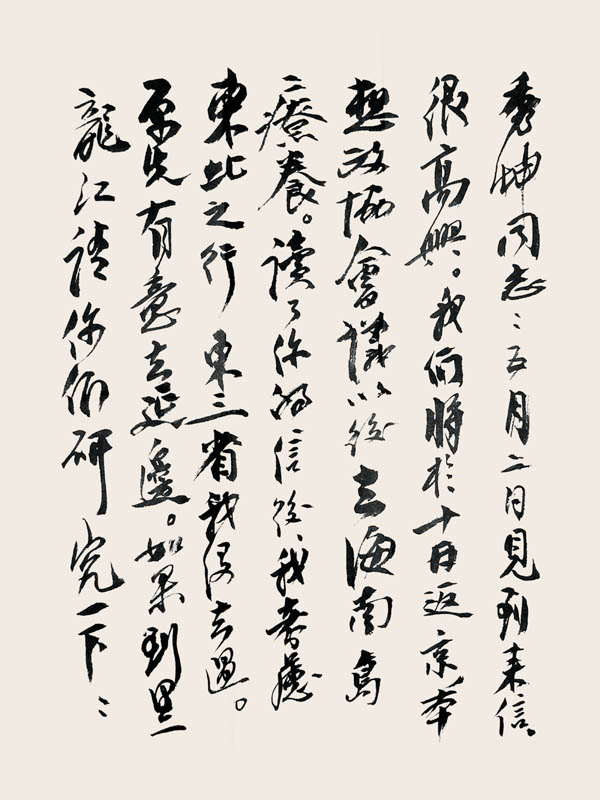 秀坤同志：五月二日見到来信。
很高興。我们將於十日返京本
想政協會議以後去海南島
療養。讀了你的信後、我考慮
東北之行 東三省我没去過。
原先有意去延邊。如果到黑
龍江請你们研究一下：